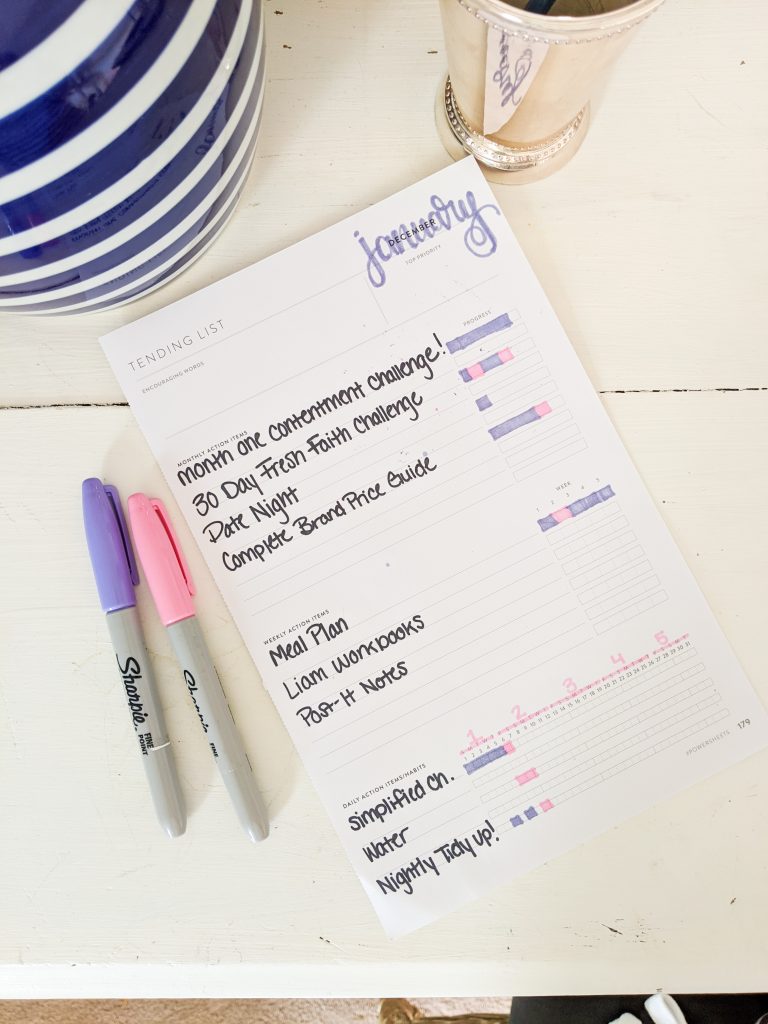 january
DECEMBER
TOP PRIORITY
TENDING LIST
ENCOURAGING WORDS
PROGRESS
MONTHLY ACTION ITEMS
month one contentment challenge!
30 Day Fresh Faith Challenge
Date Night
Complete Brand Price Guide
WEEK
1 2 3 4 5
WEEKLY ACTION ITEMS
Meal Plan
Liam Workbooks
Post-It Notes
1 2 3 4 5
1 2 3 4 5 6 7 8 9 10 11 12 13 14 15 16 17 18 19 20 21 22 23 24 25 26 27 28 29 30 31
DAILY ACTION ITEMS/HABITS
simplified Ch.
Water
Nightly Tidy up!
#POWERSHEETS 179
Sharpie
FINE
POINT
Sharpie
FINE